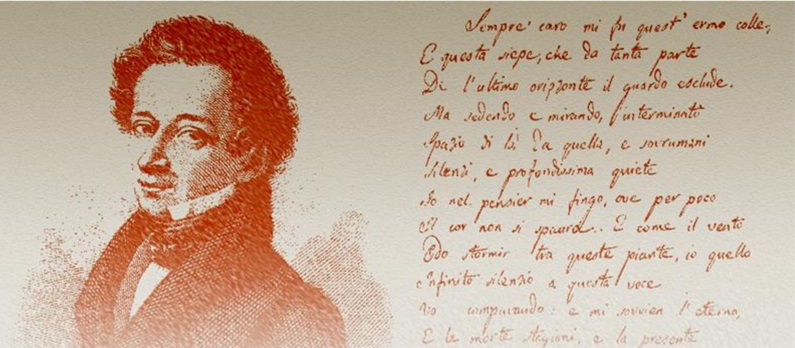 Sempre caro mi fu quest' ermo colle,
E questa siepe, che da tanta parte
De l'ultimo orizzonte il guardo esclude.
Ma sedendo e mirando, l'interminato
Spazio di là da quella, e sovrumani
Silenzi, e profondissima quiete
Io nel pensier mi fingo, ove per poco
Il cor non si spaura. E come il vento
Odo stormir tra queste piante, io quello
Infinito silenzio a questa voce
Vo comparando: e mi sovvien l'eterno,
E le morte stagioni, e la presente